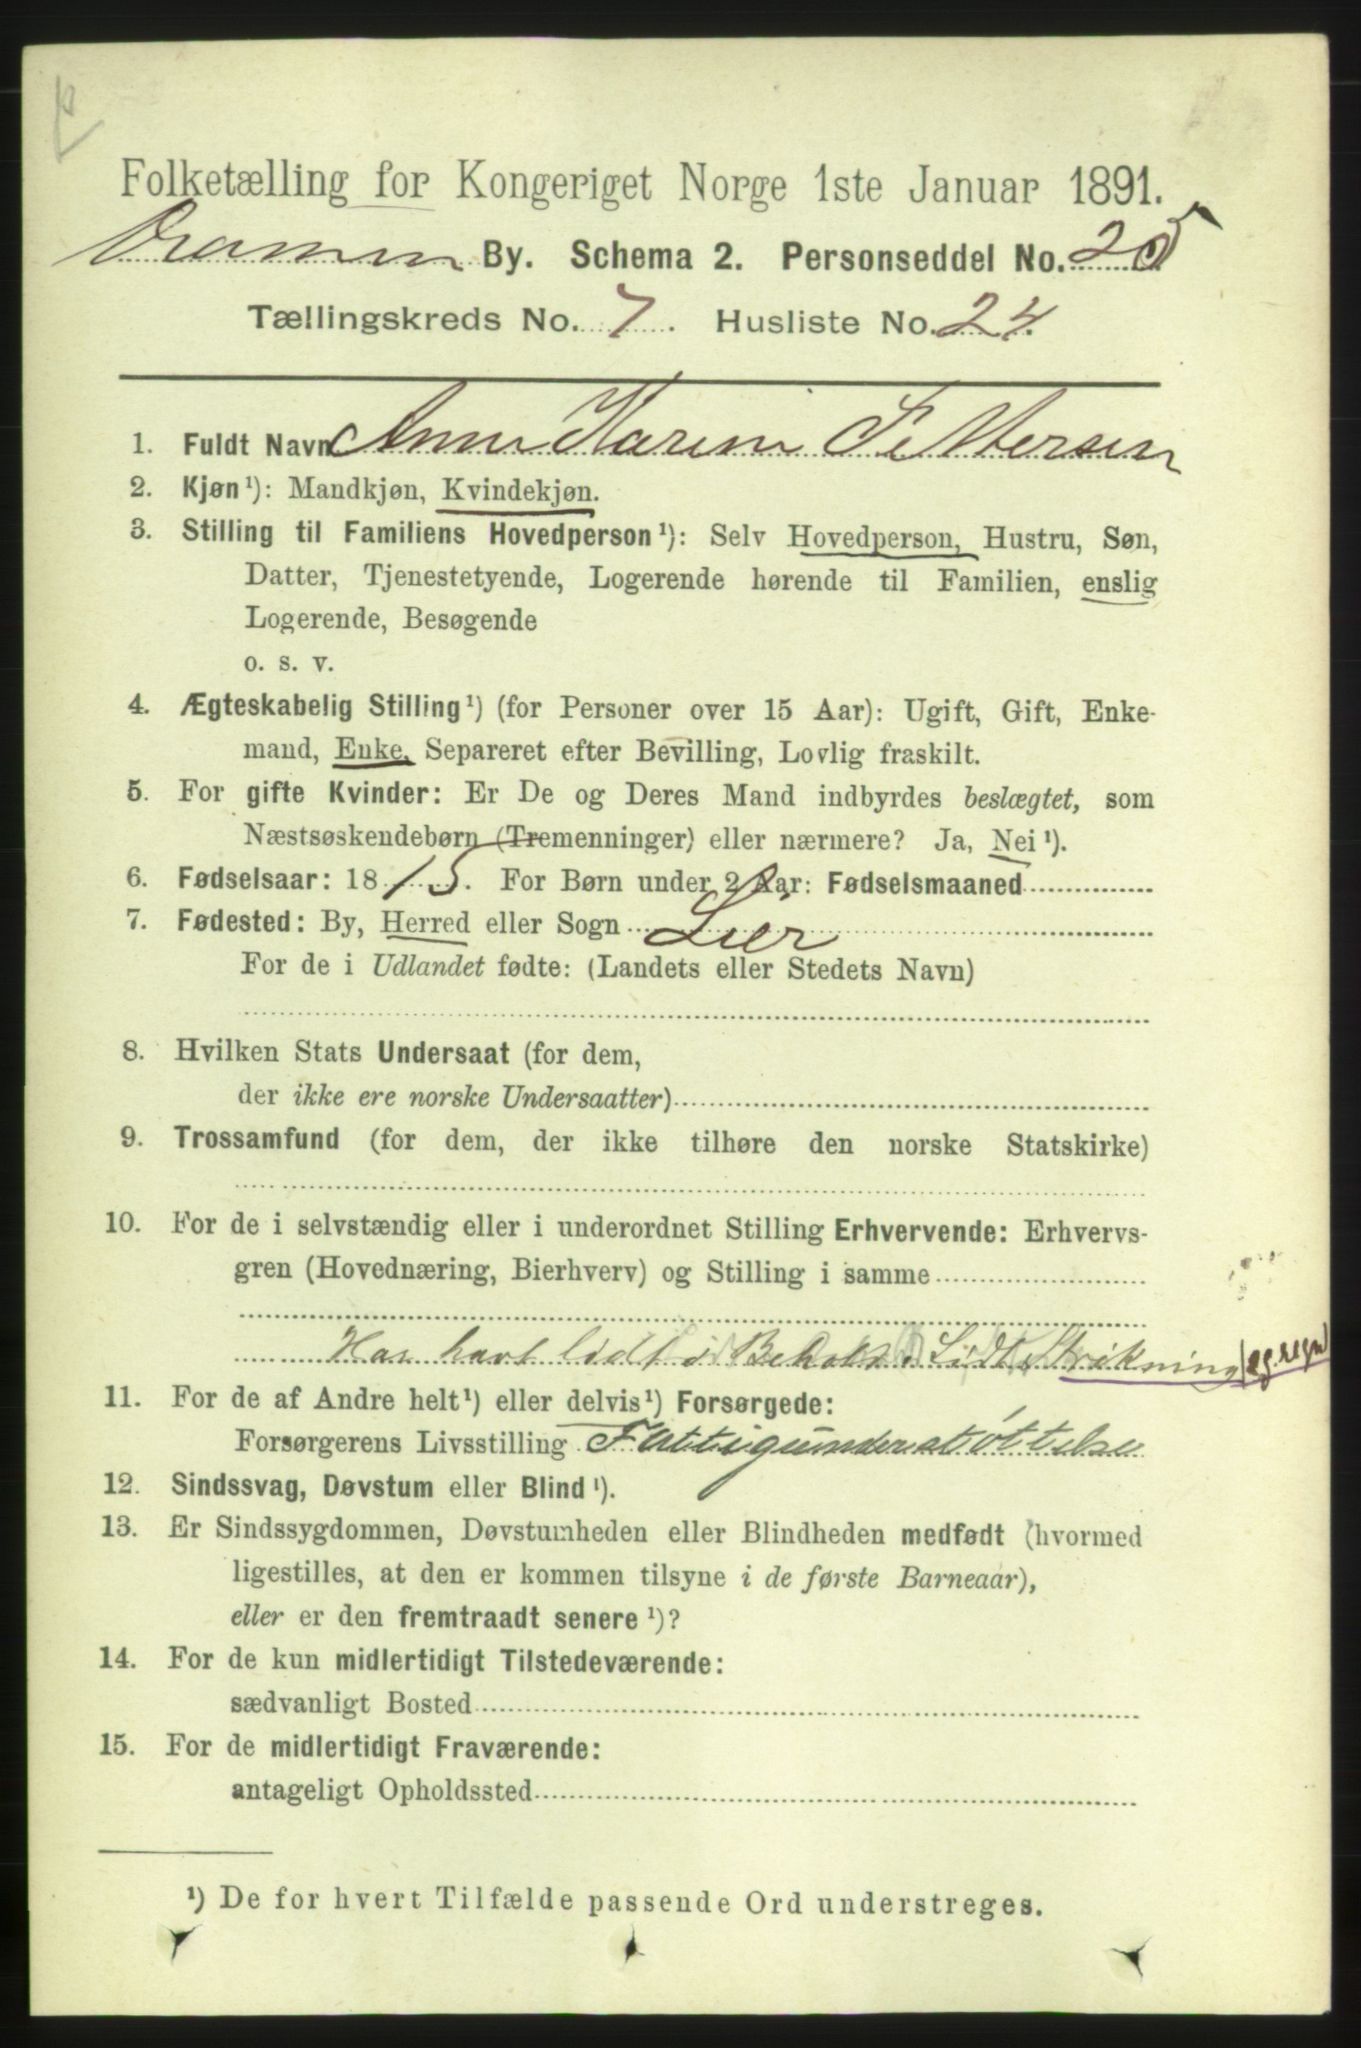 Folketælling for Kongeriget Norge 1ste Januar 1891.
Dramen By. Schema 2. Personseddel No. 25
Tællingskreds No. 7. Husliste No. 24.
1. Fuldt Navn Anne Karine Pettersen
2. Kjøn¹): Mandkjøn, Kvindekjøn.
3. Stilling til Familiens Hovedperson¹): Selv Hovedperson, Hustru, Søn,
Datter, Tjenestetyende, Logerende hørende til Familien, enslig
Logerende, Besøgende
o. s. v.
4. Ægteskabelig Stilling¹) (for Personer over 15 Aar): Ugift, Gift, Enke-
mand, Enke, Separeret efter Bevilling, Lovlig fraskilt.
5. For gifte Kvinder: Er De og Deres Mand indbyrdes beslægtet, som
Næstsøskendebørn (Tremenninger) eller nærmere? Ja, Nei¹).
6. Fødselsaar: 1815. For Børn under 2 Aar: Fødselsmaaned
7. Fødested: By, Herred eller Sogn Lier
For de i Udlandet fødte: (Landets eller Stedets Navn)
8. Hvilken Stats Undersaat (for dem,
der ikke ere norske Undersaatter)
9. Trossamfund (for dem, der ikke tilhøre den norske Statskirke)
10. For de i selvstændig eller i underordnet Stilling Erhvervende: Erhvervs-
gren (Hovednæring, Bierhverv) og Stilling i samme
Har havt lidt Lidt Strikning (eg. regn)
11. For de af Andre helt¹) eller delvis¹) Forsørgede:
Forsørgerens Livsstilling Fattigunderstøttelse
12. Sindssvag, Døvstum eller Blind¹).
13. Er Sindssygdommen, Døvstumheden eller Blindheden medfødt (hvormed
ligestilles, at den er kommen tilsyne i de første Barneaar),
eller er den fremtraadt senere¹)?
14. For de kun midlertidigt Tilstedeværende:
sædvanligt Bosted
15. For de midlertidigt Fraværende:
antageligt Opholdssted
¹) De for hvert Tilfælde passende Ord understreges.